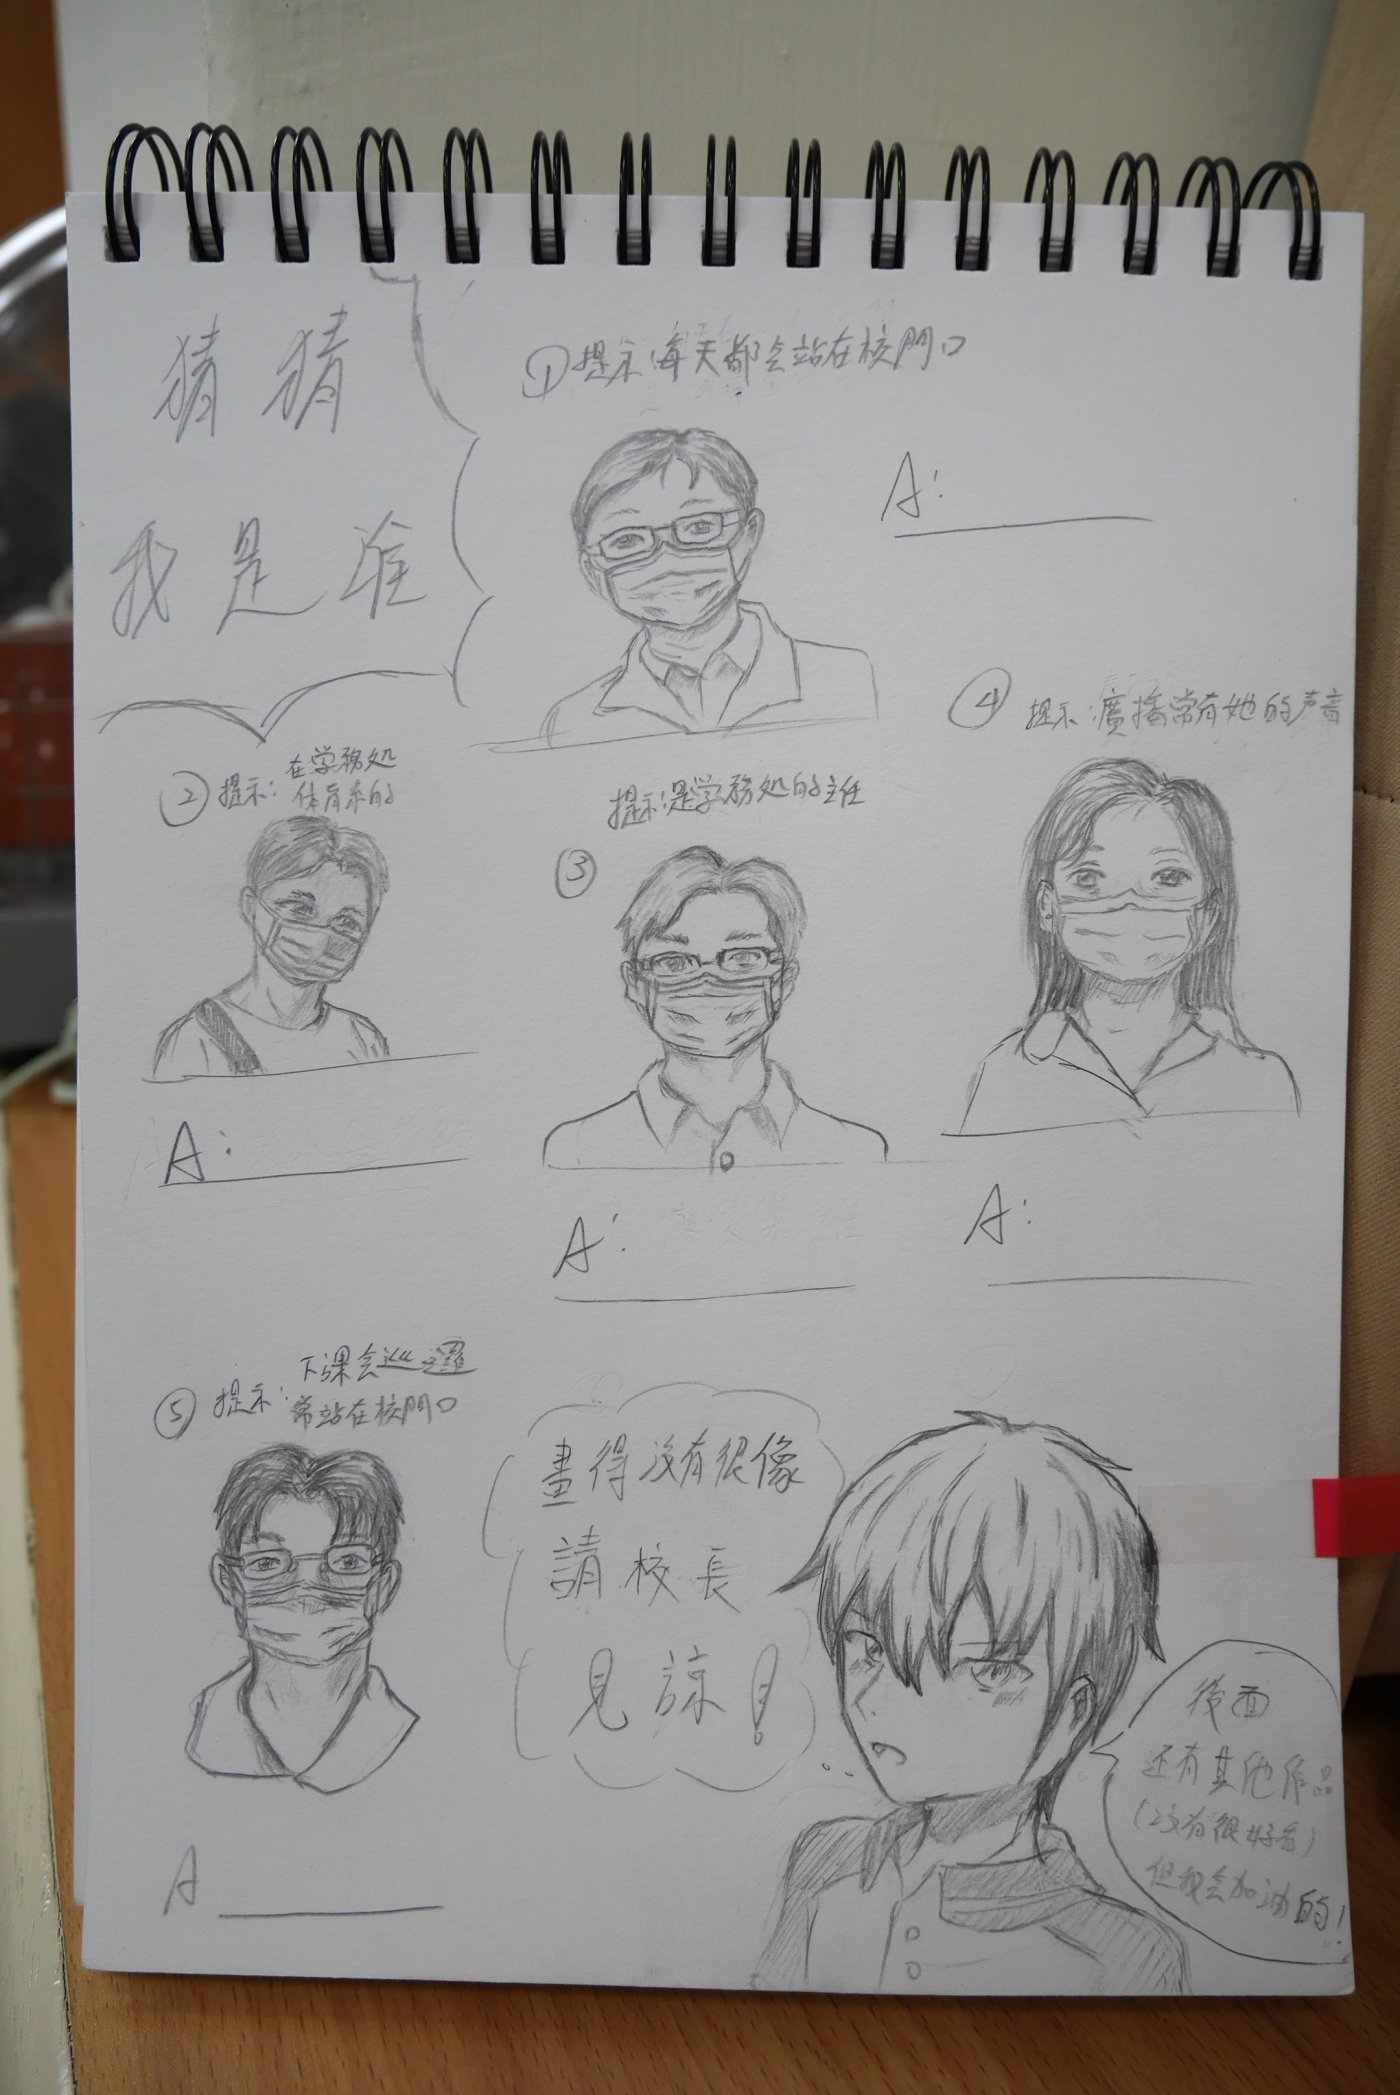 猜猜
我是誰
①提示:每天都会站在校門口
A:
②提示:在学務処
体育組的
A:
提示:是学務処的主任
③
A:
④提示:廣播常有她的声音
A:
⑤提示:下課会巡邏
常站在校門口
A
畫得没有很像
請校長
見諒!
後面
还有其他作品
(没有很好看)
但我会加油的!